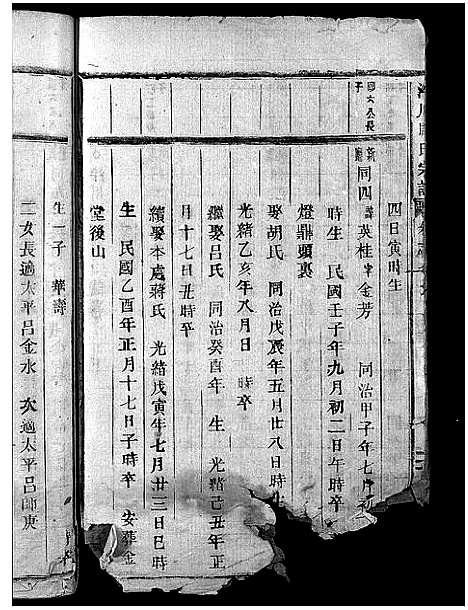 四日寅時生
國六公長子
同四
諱英桂字金芳 同治甲子年七月初
時生 民國壬子年九月初二日午時卒
燈鼎頭裏
娶胡氏 同治戊辰年五月廿八日時生
光緒乙亥年八月日 時卒
繼娶呂氏 同治癸酉年 生 光緒己丑年正
月十七日丑時卒
續娶本處蔣氏 光緒戊寅年七月廿三日巳時
生 民國乙酉年正月十七日子時卒 安葬金
堂後山
生一子 華壽
二女長適太平呂金水 次適太平呂帥庚